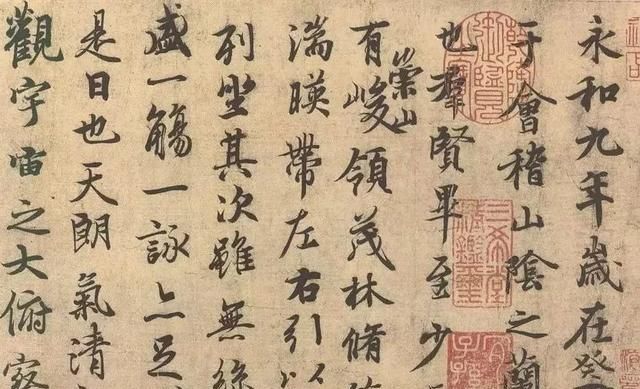 永和九年歲在癸
于會稽山陰之蘭
也羣賢畢至少
有崇山峻領茂林脩
湍暎帶左右引以
列坐其次雖無絲
盛一觴一詠亦足
是日也天朗氣清
觀宇宙之大俯察
三希堂精鑑璽